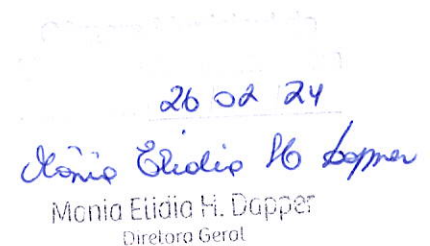 26 02 24
Mônia Etidia H Dapper
Monia Etidia H. Dapper
Diretora Geral